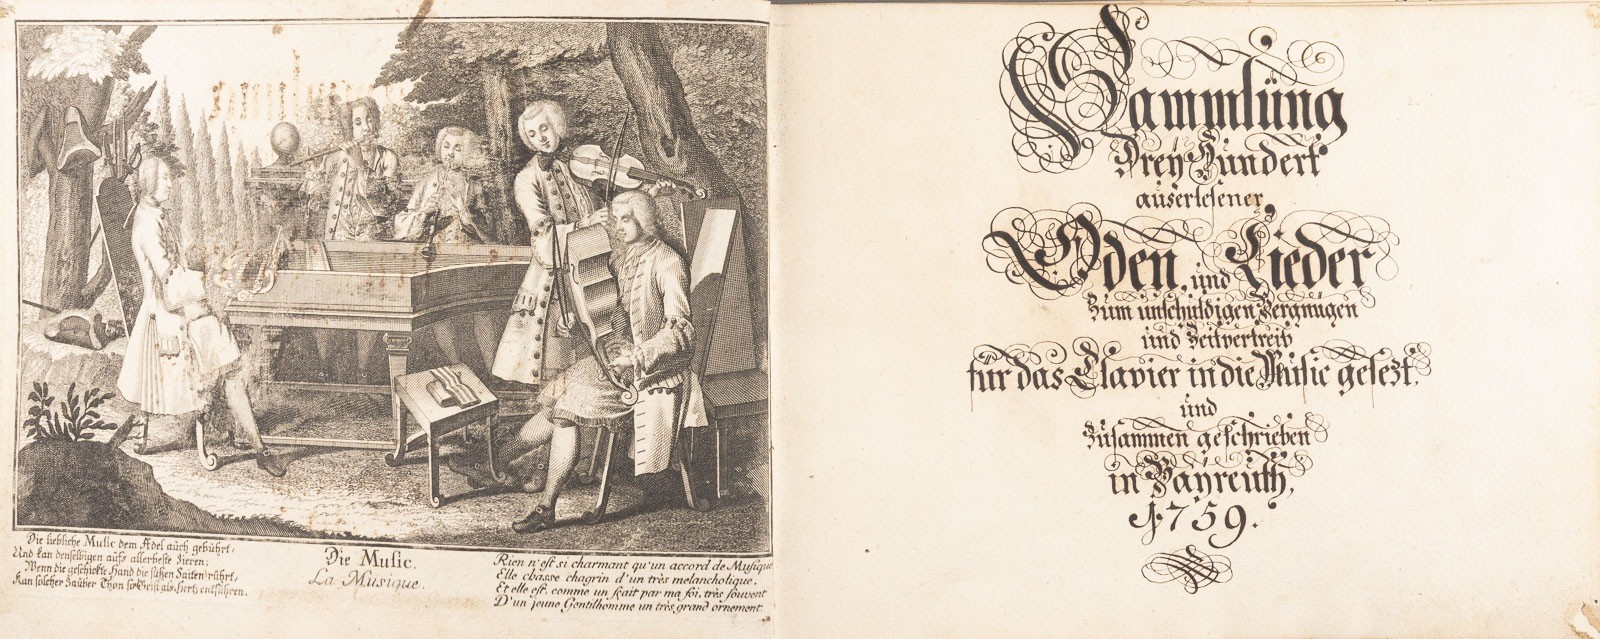 Die liebliche Music dem Adel auch gebührt,
Und kan denselbigen aufs allerbeste Zieren;
Wenn die geschickte Hand die süßen Saiten rührt,
Kan solcher Zauber Thon so Geist als Hertz entführen.
Die Music.
La Musique.
Rien n'est si charmant qu'un accord de Musique
Elle chasse chagrin d'un très melancholique,
Et elle est, comme un scait par ma foi, très souvent
D'un jeune Gentilhomme un très grand ornement.
Sammlüng
Dreÿ Hündert
aüserlesener
Oden, und Lieder
Züm ünschüldigen Vergnügen
und Zeitvertreib
für das Clavier in die Music gesezt,
und
Züsammen geschrieben
in Baÿreüth,
1759.